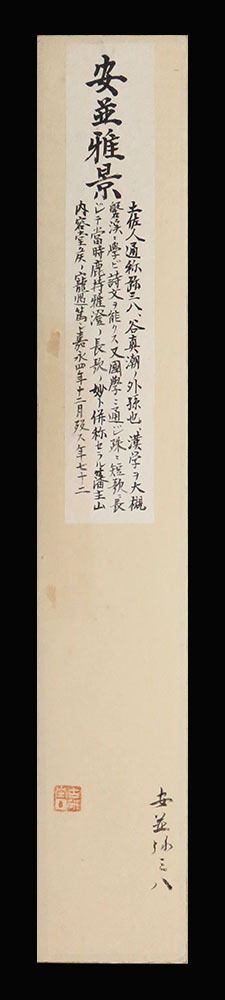 安並雅景
土佐人通称弥三八、谷真潮ノ外孫也、漢学ヲ大槻
磐渓ニ学ビ詩文ヲ能クス又國學ニ通ジ殊ニ短歌ニ長
ジテ當時鹿持雅澄ノ長歌ノ妙ト併称セラル藩主山
内容堂矦ノ寵遇篤シ嘉永四年十二月歿ス年七十二
安並弥三八